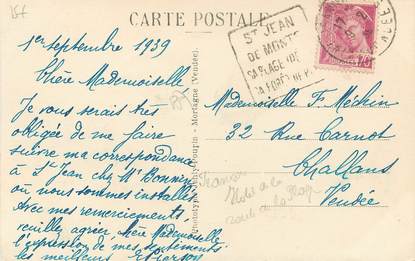 15f
CARTE POSTALE
1er septembre 1939
Chère Mademoiselle
Je vous serais très
obligée de me faire
suivre ma correspondance
à St Jean chez Mr Bonnin
où nous sommes installés
Avec mes remerciements
veuillez agréer Chère Mademoiselle
l'expression de mes sentiments
les meilleurs
Phototypie Pourpin - Mortagne (Vendée)
ST JEAN
DE MONTS
SA PLAGE
SA FORÊT
Mademoiselle F. Méchin
32 Rue Carnot
Challans
Vendée